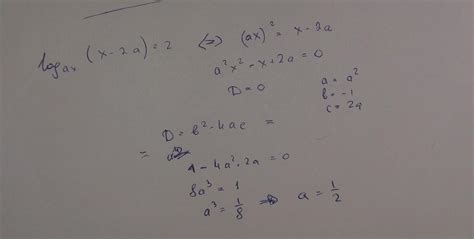 log_ax (x - 2a) = 2 <=> (ax)² = x - 2a
a²x² - x + 2a = 0
D = 0
a = a²
b = -1
c = 2a
D = b² - 4ac =
=
1 - 4a² · 2a = 0
8a³ = 1
a³ = 1/8 => a = 1/2